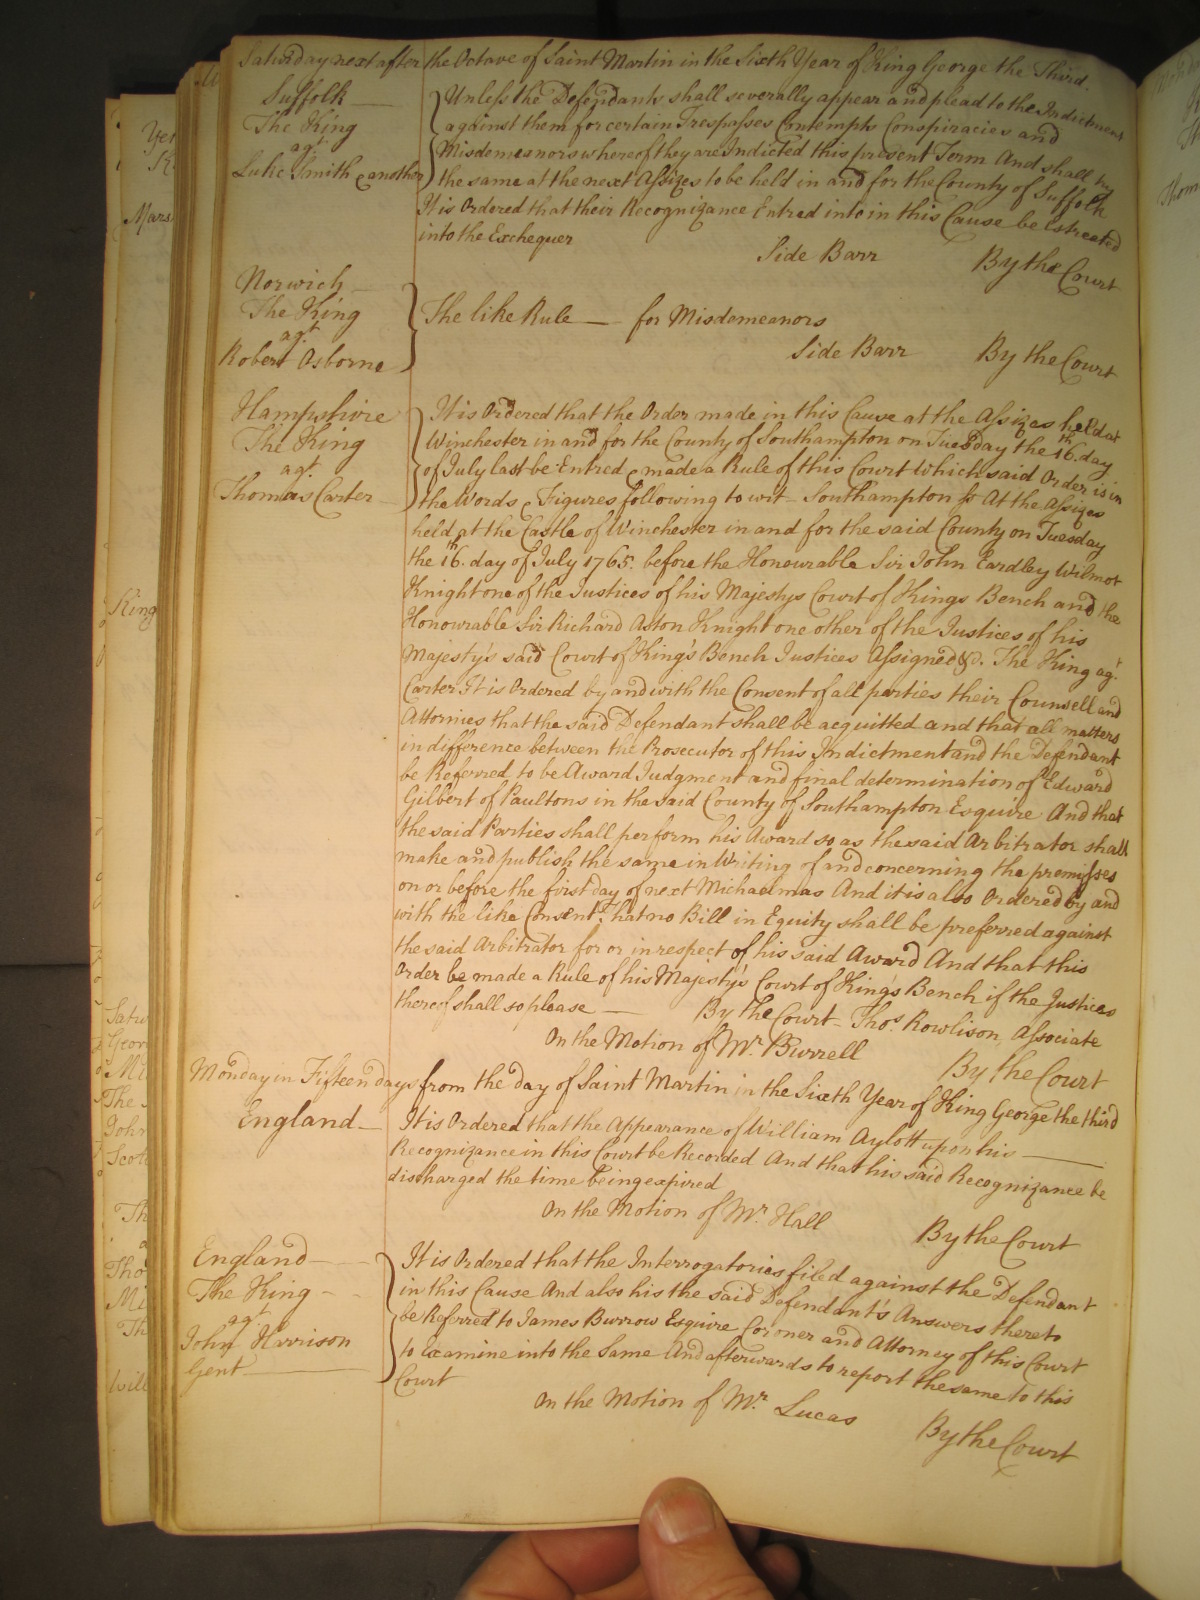 Saturday next after the Octave of Saint Martin in the Sixth Year of King George the Third.
Suffolk
The King
agt.
Luke Smith & another
Unless the Defendants shall severally appear and plead to the Indictment
against them for certain Trespasses Contempts Conspiracies and
Misdemesnors whereof they are Indicted this present Term And shall try
the same at the next Assizes to be held in and for the County of Suffolk
It is Ordered that their Recognizance Entred into in this Cause be Estreated
into the Exchequer
Side Barr By the Court
Norwich
The King
agt.
Robert Osborne
The like Rule — for Misdemeanors
Side Barr By the Court
Hampshire
The King
agt.
Thomas Carter
It is Ordered that the Order made in this Cause at the Assizes held at
Winchester in and for the County of Southampton on Tuesday the 16th. day
of July last be Entred & made a Rule of this Court Which said Order is in
the Words & Figures following to wit – Southampton ss At the Assizes
held at the Castle of Winchester in and for the said County on Tuesday
the 16th. day of July 1765. before the Honourable Sir John Eardley Wilmot
Knight one of the Justices of his Majestys Court of Kings Bench and the
Honourable Sir Richard Aston Knight one other of the Justices of his
Majesty's said Court of King's Bench Justices Assigned &c. The King agt.
Carter It is Ordered by and with the Consent of all parties their Counsell and
Attornies that the said Defendant shall be acquitted and that all matters
in difference between the Prosecutor of this Indictment and the Defendant
be Referred to be Award Judgment and final determination of Edward
Gilbert of Paultons in the said County of Southampton Esquire And that
the said Parties shall perform his Award so as the said Arbitrator shall
make and publish the same in Writing of and concerning the premisses
on or before the first day of next Michaelmas And it is also Ordered by and
with the like Consent That no Bill in Equity shall be preferred against
the said Arbitrator for or in respect of his said Award And that this
Order be made a Rule of his Majesty's Court of Kings Bench if the Justices
thereof shall so please — By the Court – Thos. Rowlison, Associate
On the Motion of Mr. Burrell
By the Court
Monday in Fifteen days from the day of Saint Martin in the Sixth Year of King George the third
England
It is Ordered that the Appearance of William Aylott upon his
Recognizance in this Court be Recorded And that his said Recognizance be
discharged the time being expired
On the Motion of Mr. Hall By the Court
England
The King
agt.
John Harrison
Gent
It is Ordered that the Interrogatories filed against the Defendant
in this Cause And also his the said Defendant's Answers thereto
be Referred to James Burrow Esquire Coroner and Attorney of this Court
to Examine into the Same And afterwards to report the same to this
Court
On the Motion of Mr. Lucas By the Court